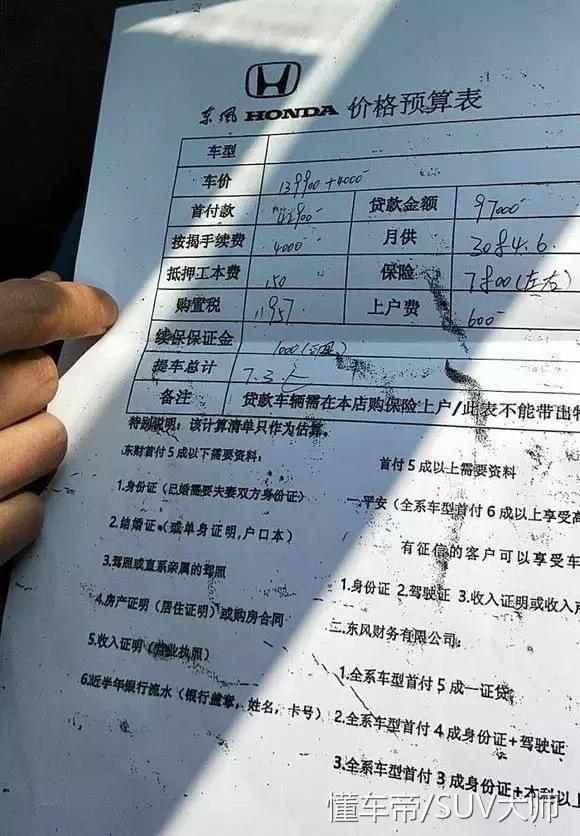 东风 HONDA 价格预算表
车型
车价 139900+4000
首付款 42900 贷款金额 97000
按揭手续费 4000 月供 3084.6
抵押工本费 150 保险 7800(左右)
购置税 11957 上户费 600
续保保证金 1000
提车总计 7.3
备注 贷款车辆需在本店购保险上户/此表不能带出
特别说明: 该计算清单只作为估算。
东财首付5成以下需要资料: 首付5成以上需要资料
1.身份证(已婚需要夫妻双方身份证) 一平安(全系车型首付6成以上享受
2.结婚证(或单身证明,户口本) 有征信的客户可以享受车
3.驾照或直系亲属的驾照 1.身份证 2.驾驶证 3.收入证明或收入
4.房产证明(居住证明)或购房合同 二.东风财务有限公司:
5.收入证明(营业执照) 1.全系车型首付5成一证贷
6近半年银行流水(银行盖章,姓名,卡号) 2.全系车型首付4成身份证+驾驶证
3.全系车型首付3成身份证+本科以上
懂车帝/SUV大师